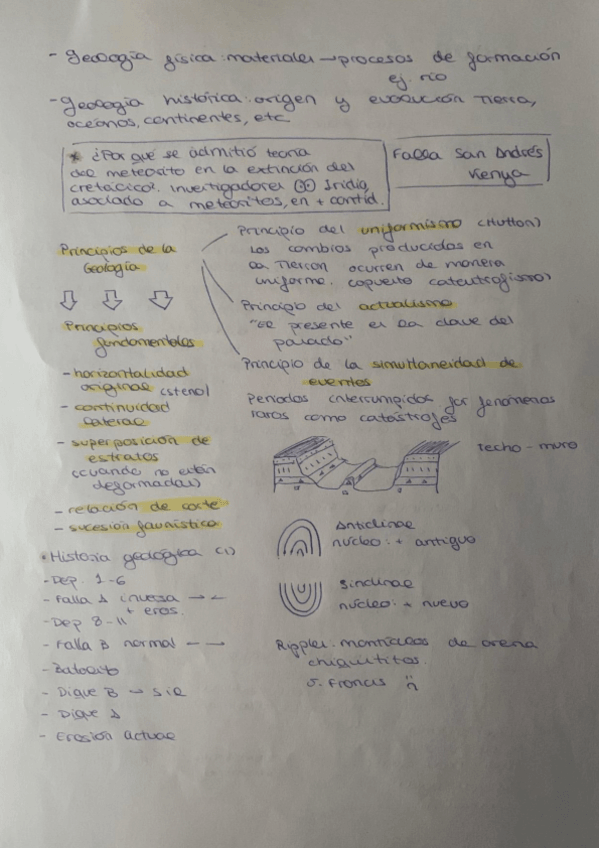 - Geología física: materiales → procesos de formación
ej. río
- Geología histórica: origen y evolución Tierra,
océanos, continentes, etc
* ¿Por qué se admitió teoría
del meteorito en la extinción del
cretácico?. Investigadores Iridio,
asociado a meteoritos, en + cantid.
Falla San Andrés
Kenya
Principios de la
Geología
Principios
fundamentales
- horizontalidad
original (steno)
- continuidad
lateral
- superposición de
estratos
(cuando no están
deformadas)
- relación de corte
- sucesión faunística
Principio del uniformismo (Hutton)
Los cambios producidos en
la Tierra ocurren de manera
uniforme. (opuesto catastrofismo)
Principio del actualismo
"El presente es la clave del
pasado"
Principio de la simultaneidad de
eventos
Periodos interrumpidos por fenómenos
raros como catástrofes
techo - muro
Anticlinal
núcleo: + antiguo
Sinclinal
núcleo: + nuevo
Ripples: montículos de arena
chiquititos.
J. Francis
• Historia geológica (1)
- Dep. 1-6
- Falla A inversa → ←
+ eros.
- Dep 8-11
- Falla B normal ← →
- Batolito
- Dique B → sill
- Dique A
- Erosión actual